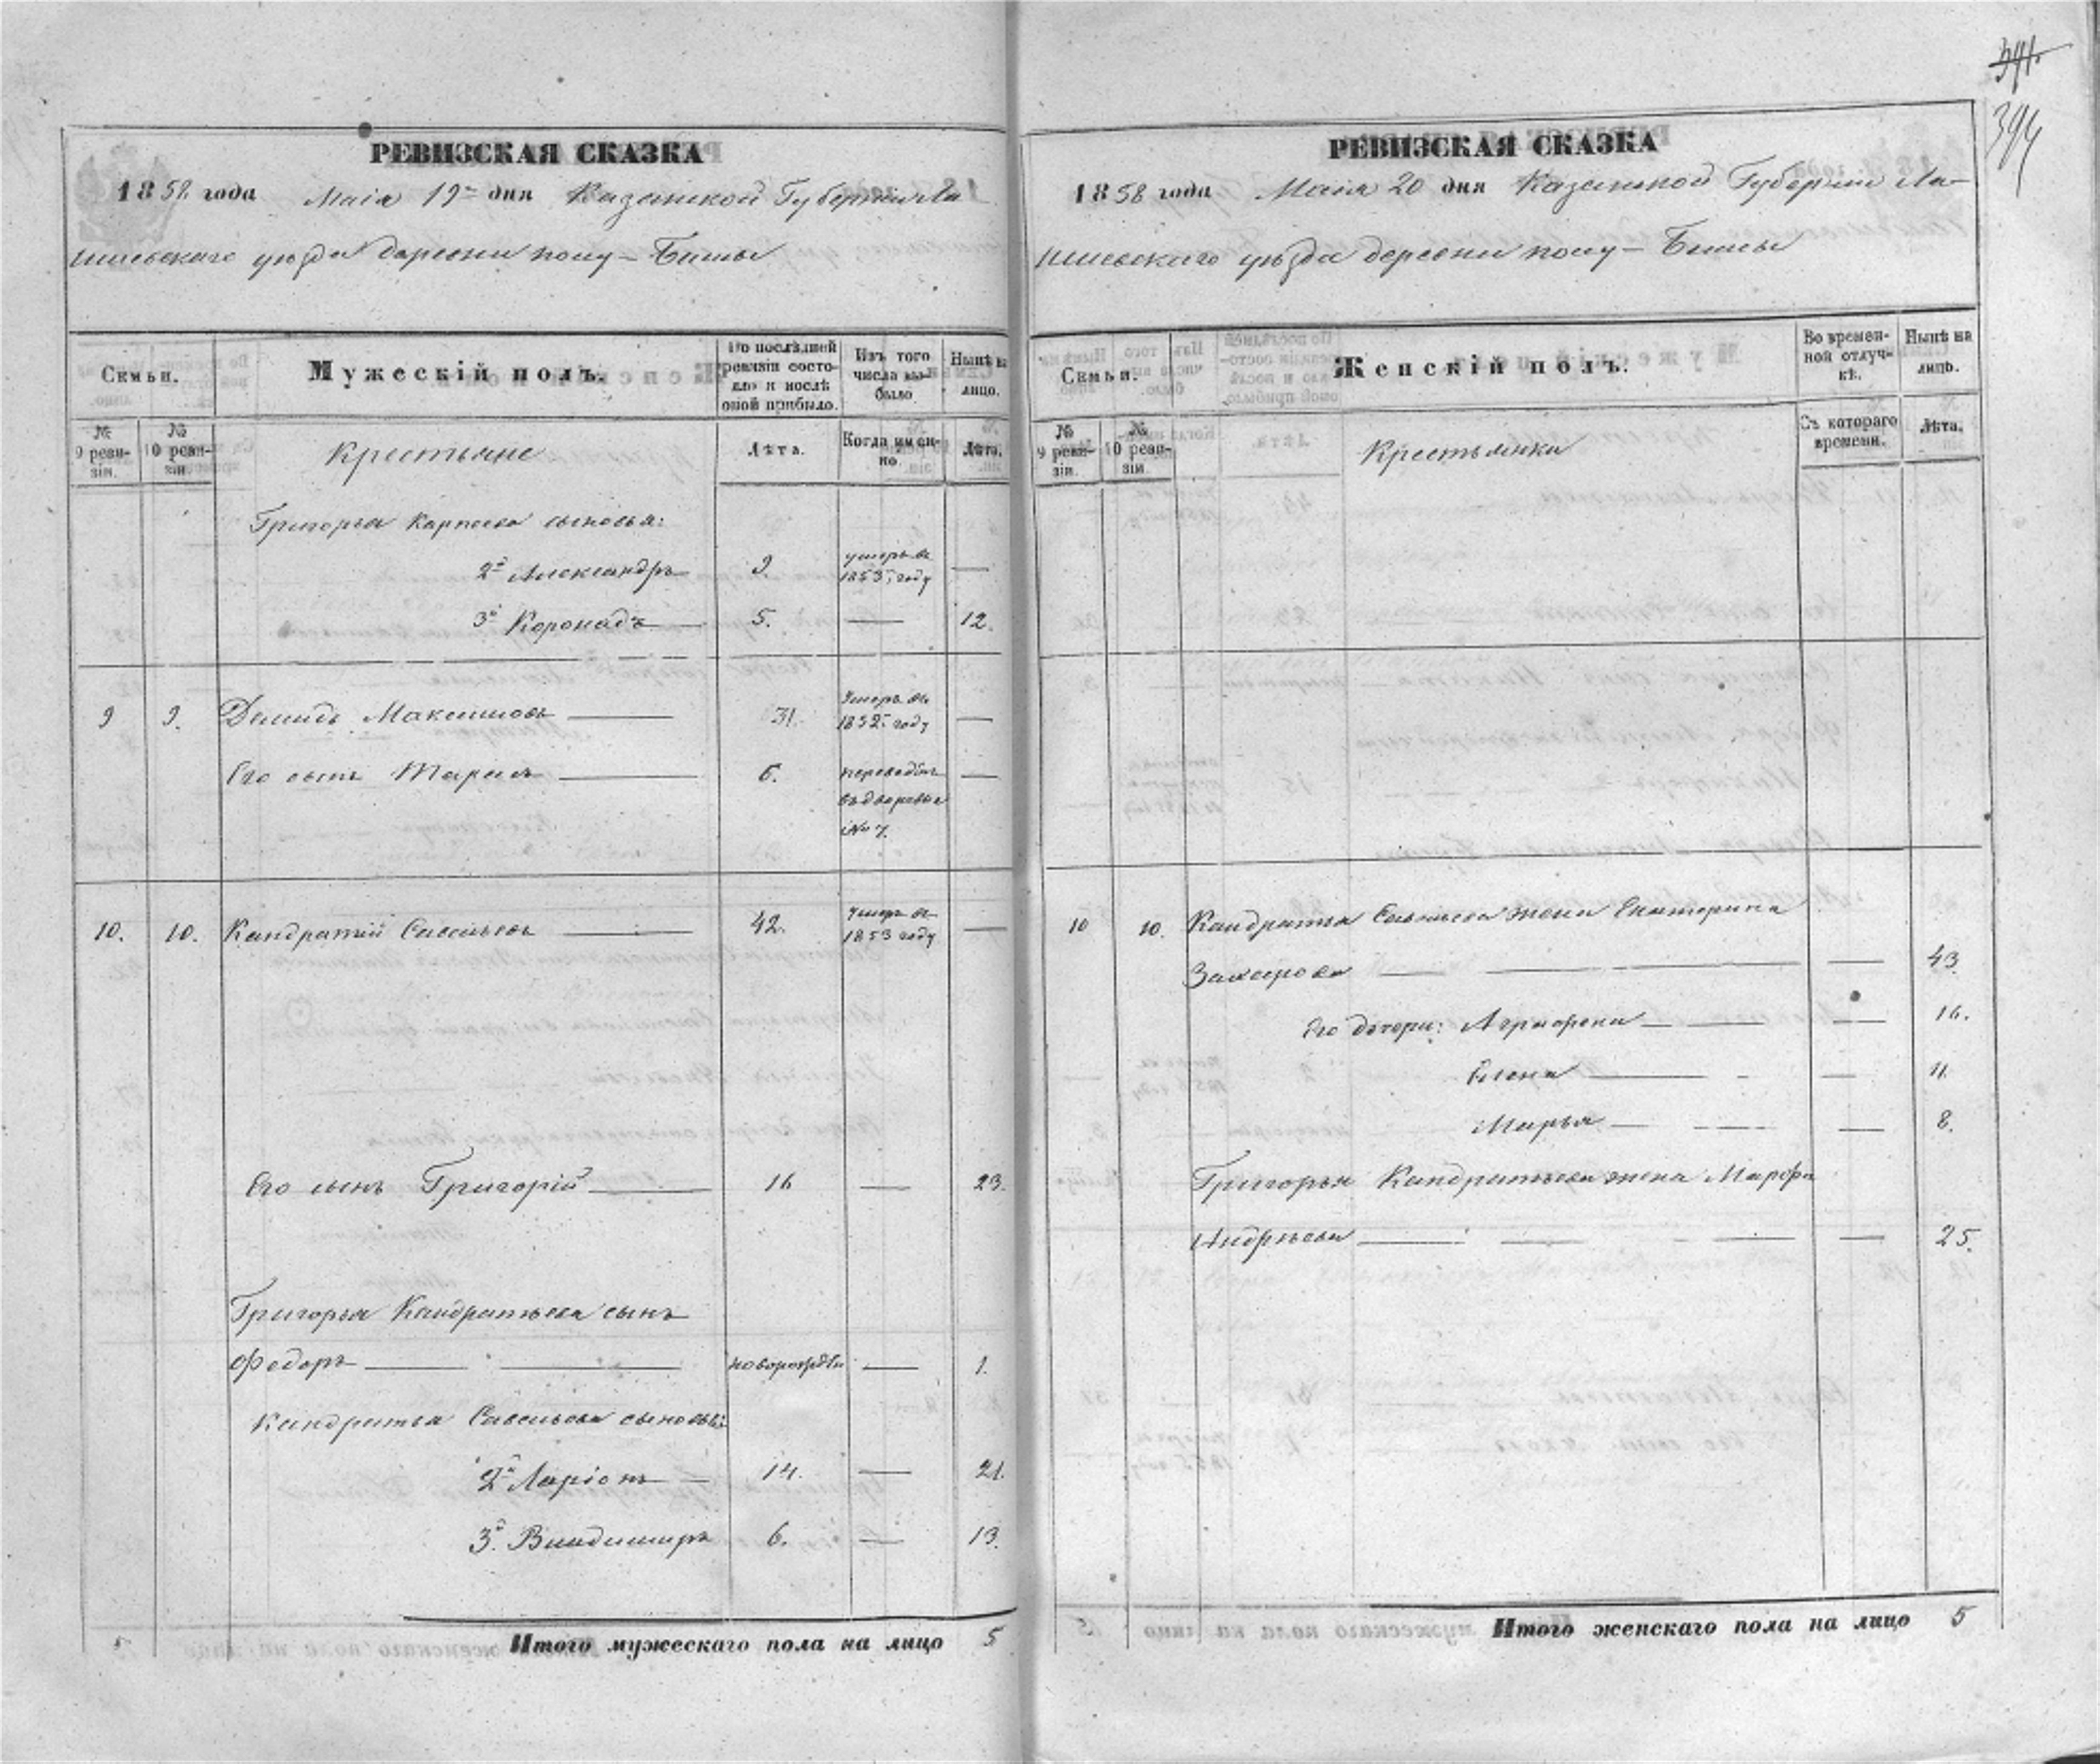 394
РЕВИЗСКАЯ СКАЗКА
1858 года Маія 19го дня Казанской Губерніи Ла
ишевскаго уѣзда деревни Бимы
Семьи.
Мужескій полъ.
По послѣдней ревизіи состояло и послѣ оной прибыло.
Изъ того числа выбыло
Нынѣ на лицо.
№ 9 ревизіи.
№ 10 ревизіи.
Крестьяне
Лѣта.
Когда именно
Лѣта.
Григорья Карпеева сыновья:
2й Александръ 9. умеръ въ 1853 году —
3й Коронадъ 5. — 12.
9 9. Демидъ Максимовъ 31. Умеръ въ 1852 году —
Его сынъ Тарасъ 6. переведенъ въ дворовые № 7. —
10. 10. Кандратій Савельевъ 42. Умеръ въ 1853 году —
Его сынъ Григорій 16 — 23.
Григорья Кандратьева сынъ
Федоръ — 1.
Кандратья Савельева сыновья:
2й Ларіонъ 14. — 21.
3й Владимиръ 6. — 13.
Итого мужескаго пола на лицо 5
РЕВИЗСКАЯ СКАЗКА
1858 года Маія 20 дня Казанской Губерніи Ла-
ишевскаго уѣзда деревни Бимы
Семьи.
Женскій полъ.
Во временной отлучкѣ.
Нынѣ на лицо.
№ 9 ревизіи.
№ 10 ревизіи.
Крестьянки
Съ котораго времени.
Лѣта.
10 10. Кандратья Савельева жена Екатерина
Захарова — 43.
Его дочери: Агрофена — 16.
Елена — 11.
Марья — 8.
Григорья Кандратьева жена Марфа
Андрѣева — 25.
Итого женскаго пола на лицо 5